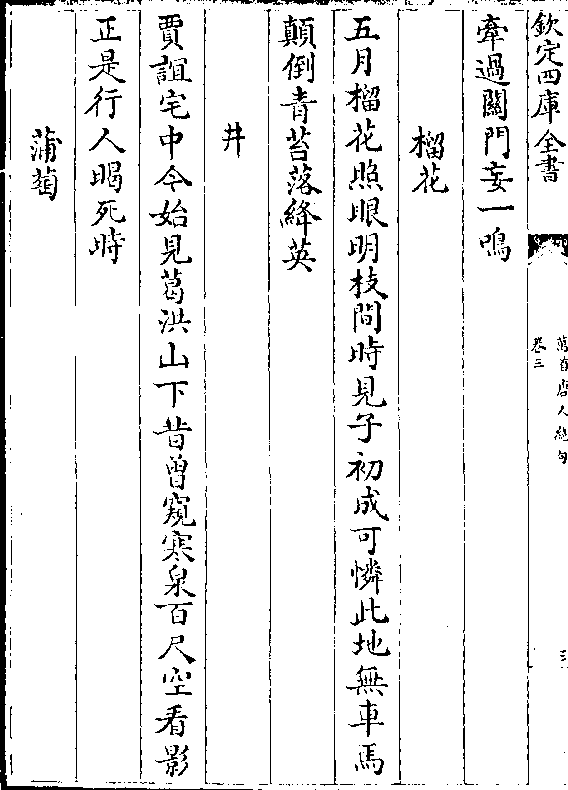 欽定四庫全書
萬首唐人絶句
卷三
三
牽過關門妄一鳴
榴花
五月榴花照眼明枝間時見子初成可憐此地無車馬
顛倒青苔落絳英
井
賈誼宅中今始見葛洪山下昔曾窺寒泉百尺空看影
正是行人暍死時
蒲萄